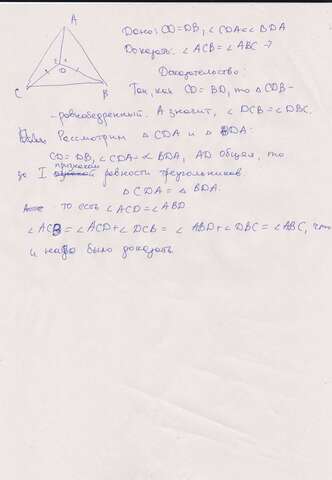 A
D
C
B
Дано: CD=DB, ∠CDA=∠BDA
Доказать: ∠ACB=∠ABC -?
Доказательство:
Так, как CD=BD, то △CDB-
-равнобедренный. А значит, ∠DCB=∠DBC.
Рассмотрим △CDA и △BDA:
CD=DB, ∠CDA=∠BDA, AD общая, то
по I признаку равенства треугольников
△CDA=△BDA.
то есть ∠ACD=∠ABD
∠ACB=∠ACD+∠DCB=∠ABD+∠DBC=∠ABC, что
и надо было доказать